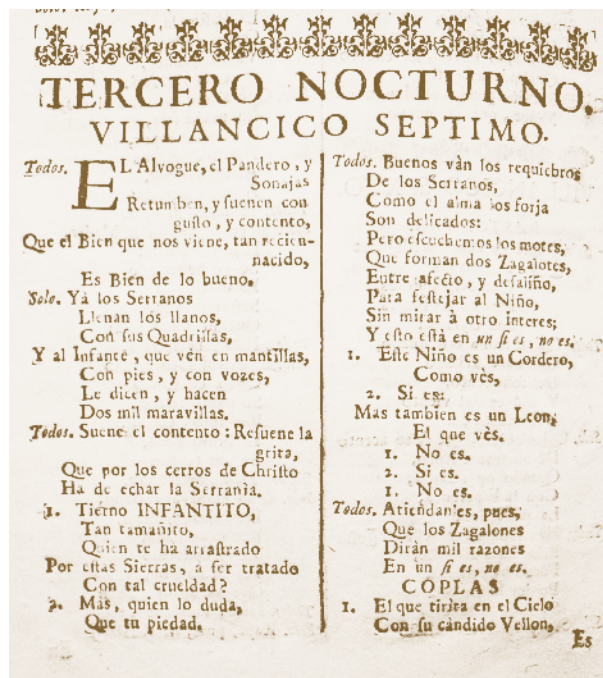 TERCERO NOCTURNO.
VILLANCICO SEPTIMO.
Todos. EL Alvogue, el Pandero, y
Sonajas
Retumben, y suenen con
gusto, y contento,
Que el Bien que nos viene, tan recien-
nacido,
Es Bien de lo bueno.
Solo. Yà los Serranos
Llenan lós llanos,
Con sus Quadrillas,
Y al Infante, que vén en mantillas,
Con pies, y con vozes,
Le dicen, y hacen
Dos mil maravillas.
Todos. Suene el contento: Resuene la
grita,
Que por los cerros de Christo
Ha de echar la Serranìa.
1. Tierno INFANTITO,
Tan tamañito,
Quien te ha arrastrado
Por estas Sierras, a ser tratado
Con tal crueldad?
2. Mas, quien lo duda,
Que tu piedad.
Todos. Buenos vàn los requiebros
De los Serranos,
Como el alma los forja
Son delicados:
Pero escuchemos los motes,
Que forman dos Zagalotes,
Entre afecto, y desaliño,
Para festejar al Niño,
Sin mirar à otro interes;
Y esto està en un si es, no es.
1. Este Niño es un Cordero,
Como vès,
2. Si es:
Mas tambien es un Leon,
El que vès.
1. No es.
2. Si es.
1. No es.
Todos. Atiendanles, pues,
Que los Zagalones
Diràn mil razones
En un si es, no es.
COPLAS
1. El que tirita en el Cielo
Con su càndido Vellon,
Es